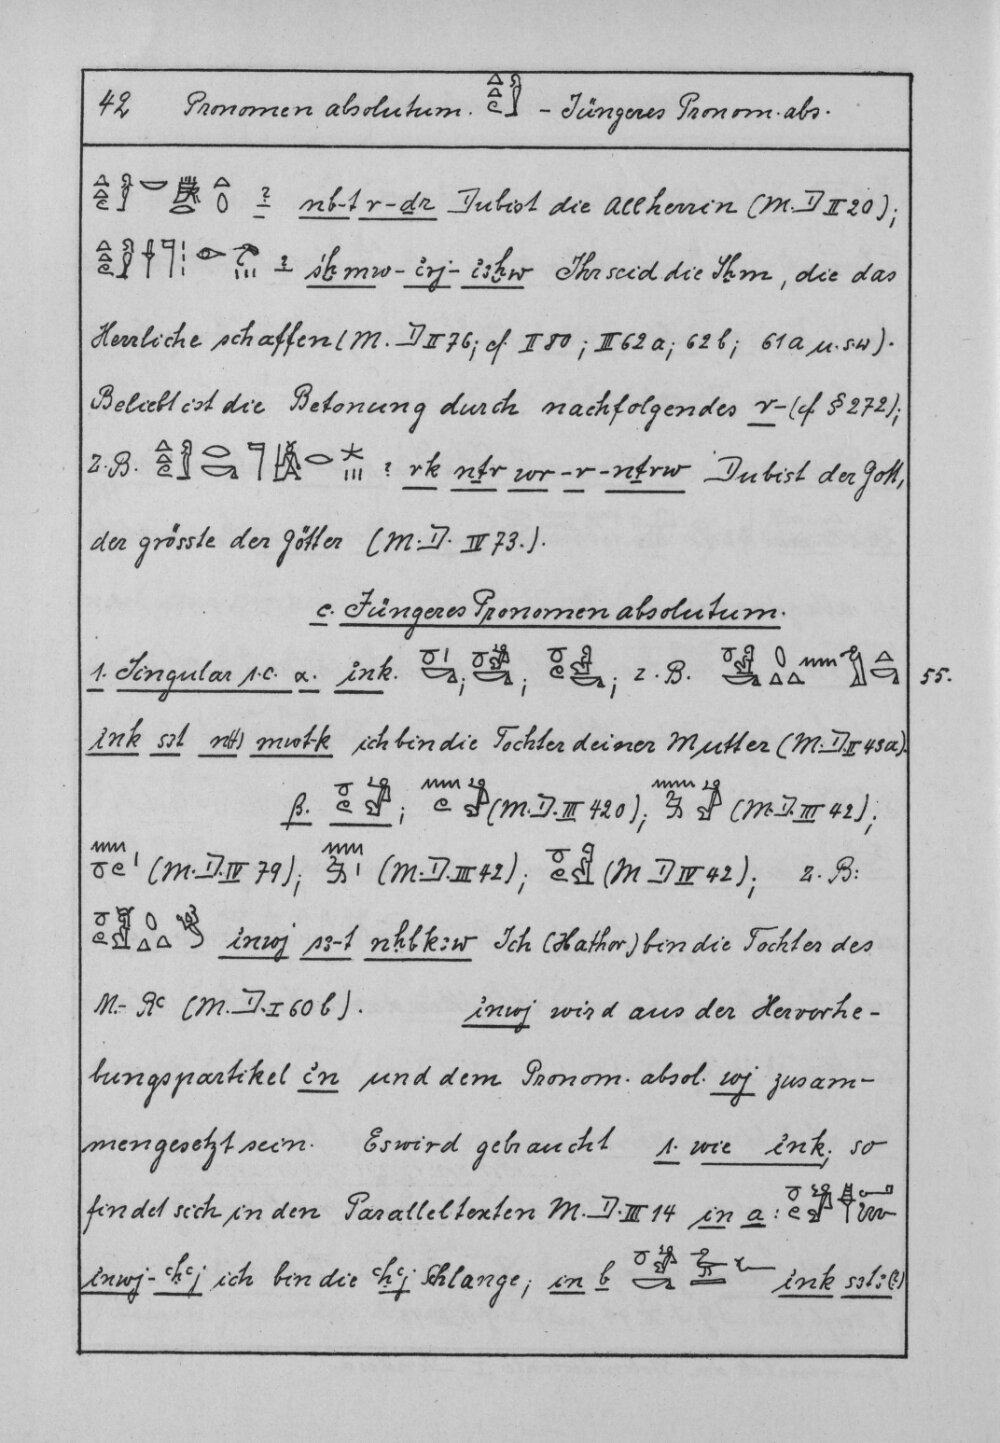 42 Pronomen absolutum. - Jüngeres Pronom. abs.
? nb-t r-dr Du bist die Allherrin (M. D II 20);
? sḫmw-irj-iꜣḫw Ihr seid die Sḫm, die das
Herrliche schaffen (M. D II 76; cf. II 80; III 62a; 62b; 61a u.s.w).
Beliebt ist die Betonung durch nachfolgendes r- (cf § 272);
z.B. ? rk nṯr wr-r-nṯrw Du bist der Gott,
der grösste der Götter (M. D. IV 73.).
c. Jüngeres Pronomen absolutum.
1. Singular 1.c. α. ink. ; ; ; z.B. 55.
ink sꜣt n(t) mwt-k ich bin die Tochter deiner Mutter (M. D. II 43a).
β. ; (M. D. III 420); (M. D. III 42);
(M. D. IV 79); (M. D. III 42); (M D IV 42); z.B:
inwj sꜣ-t nḥbkꜣw Ich (Hathor) bin die Tochter des
N.- Rc (M. D. I 60b). inwj wird aus der Hervorhe-
bungspartikel in und dem Pronom. absol. wj zusam-
mengesetzt sein. Es wird gebraucht 1. wie ink; so
findet sich in den Paralleltexten M. D. III 14 in a:
inwj-ꜥḥꜥj ich bin die ꜥḥꜥj Schlange; in b ink